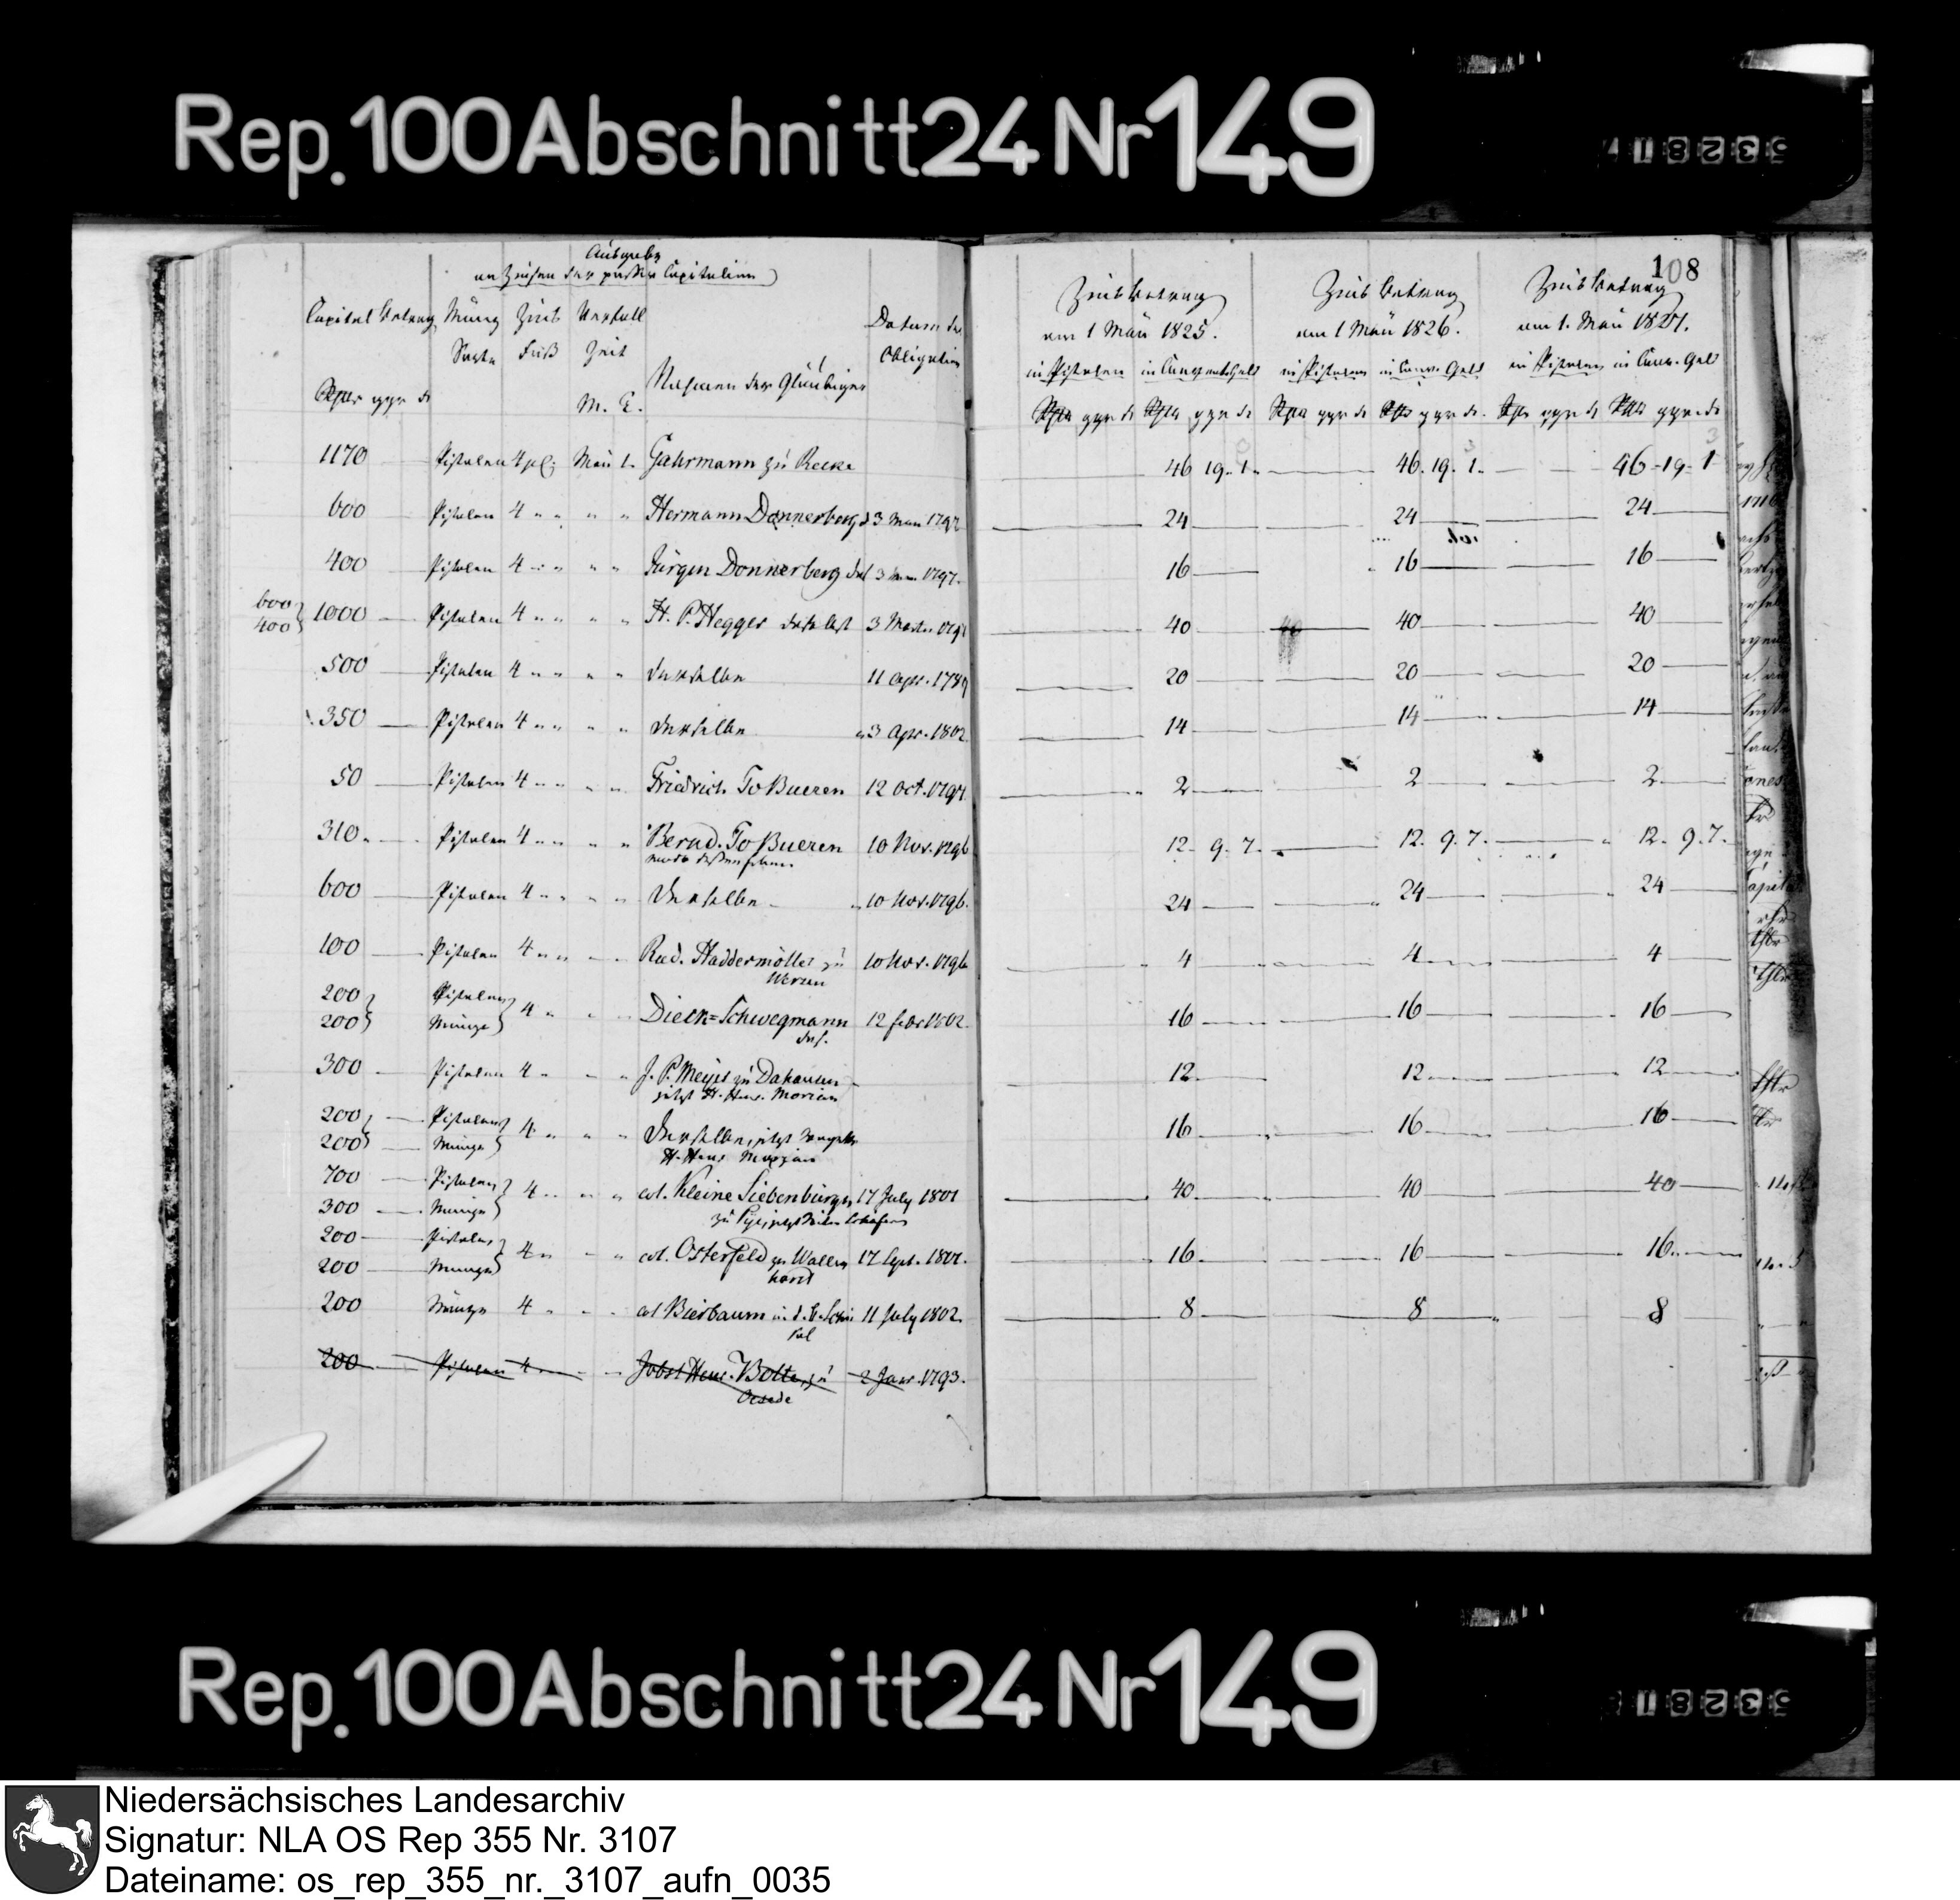 Rep. 100 Abschnitt 24 Nr 149
Ausgabe
an Zinsen der passiv Capitalien
108
Capital Betrag Münz Zins Verfall Datum der
Sorte Fuß Zeit Obligation
Namen der Gläubiger
ggr d M. T.
Zins Betrag Zins Betrag Zins Betrag
am 1 Mai 1825. am 1 Mai 1826. am 1. Mai 1827.
in Pistolen in Conventgeld in Pistolen in Conv. Geld in Pistolen in Conv. Geld
ggr d ggr d ggr d ggr d ggr d ggr d
1170 Pistolen 4 pC. Mai 1. Gahrmann zu Recke 46 19. 1. 46. 19. 1. 46-19-1
600 Pistolen 4 " " " " Hermann Donnerberg 3 1797 24 24 24
400 Pistolen 4 " " " " Jürgen Donnerberg das 3 1797. 16 16 16
600 } 400 } 1000 Pistolen 4 " " " " H. P. Hegger daselbst 3 40 40 40 40
500 Pistolen 4 " " " " derselbe 11 Apr. 1789 20 20 20
350 Pistolen 4 " " " " derselbe 3 Apr. 1802 14 14 14
50 Pistolen 4 " " " " Friedrich To Bueren 12 Oct. 1797 2 2 2
310. Pistolen 4 " " " " Bernd. To Bueren 10 Nov. 1796 12. 9. 7. 12. 9. 7. 12. 9. 7.
600 Pistolen 4 " " " " derselbe 10 Nov. 1796. 24 24 24
100 Pistolen 4 " " " " Rud. Haddermöller zu 10 Nov. 1796 4 4 4
Wersen
200 } Pistolen } 4 " " " Dieck=Schwegmann 12 Febr 1802. 16 16 16
200 } Münze } das.
300 Pistolen 4 " " " J. P. Meyer zu 12 12 12
jetzt H. Henr. Morian
200 } Pistolen } 4 " " " Derselbe, jetzt 16 16 16
200 } Münze } H. Henr Morian
700 Pistolen } 4 " " " col. Kleine Siebenbürgen 17 July 1801 40 40 40
300 Münze } zu Pye, jetzt
200 Pistolen } 4 " " " col. Osterfeld zu Wallen 17 Sept. 1801. 16 16 16
200 Münze } horst
200 Münze 4 " " " col Bierbaum in d. B. Schin 11 July 1802. 8 8 8
kel
200 Pistolen 4 Jobst Henr. Bolte, zu 2 Jan. 1793.
Oesede
Rep. 100 Abschnitt 24 Nr 149
Niedersächsisches Landesarchiv
Signatur: NLA OS Rep 355 Nr. 3107
Dateiname: os_rep_355_nr._3107_aufn_0035